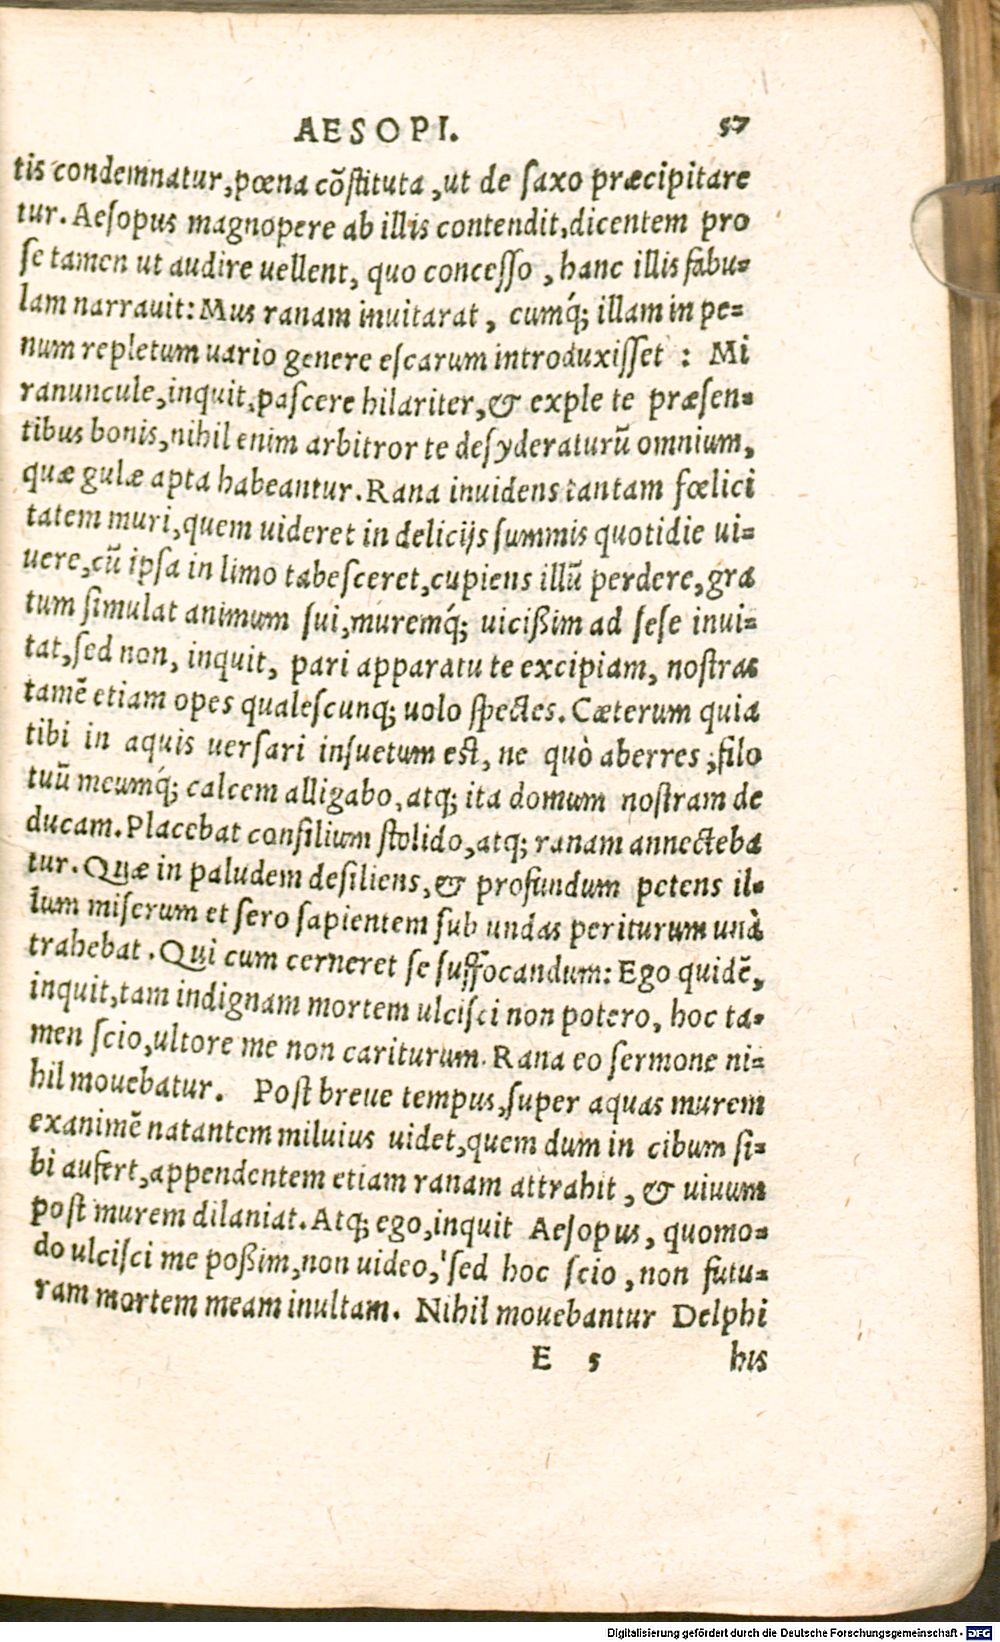 AESOPI. 57
tis condemnatur, pœna cõstituta, ut de saxo præcipitare
tur. Aesopus magnopere ab illis contendit, dicentem pro
se tamen ut audire uellent, quo concesso, hanc illis fabu-
lam narrauit: Mus ranam inuitarat, cumq́; illam in pe-
num repletum uario genere escarum introduxisset : Mi
ranuncule, inquit, pascere hilariter, & exple te præsen-
tibus bonis, nihil enim arbitror te desyderaturũ omnium,
quæ gulæ apta habeantur. Rana inuidens tantam fœlici
tatem muri, quem uideret in delicijs summis quotidie ui-
uere, cũ ipsa in limo tabesceret, cupiens illũ perdere, gra
tum simulat animum sui, muremq́; uicißim ad sese inui-
tat, sed non, inquit, pari apparatu te excipiam, nostras
tamẽ etiam opes qualescunq; uolo spectes. Cæterum quia
tibi in aquis uersari insuetum est, ne quò aberres ; filo
tuũ meumq́; calcem alligabo, atq; ita domum nostram de
ducam. Placebat consilium stolido, atq; ranam annecteba
tur. Quæ in paludem desiliens, & profundum petens il-
lum miserum et sero sapientem sub undas periturum unà
trahebat. Qui cum cerneret se suffocandum: Ego quidẽ,
inquit, tam indignam mortem ulcisci non potero, hoc ta-
men scio, ultore me non cariturum. Rana eo sermone ni-
hil mouebatur. Post breue tempus, super aquas murem
exanimẽ natantem miluius uidet, quem dum in cibum si-
bi aufert, appendentem etiam ranam attrahit, & uiuum
post murem dilaniat. Atq; ego, inquit Aesopus, quomo-
do ulcisci me poßim, non uideo, sed hoc scio, non futu-
ram mortem meam inultam. Nihil mouebantur Delphi
E 5 his
Digitalisierung gefördert durch die Deutsche Forschungsgemeinschaft - DFG